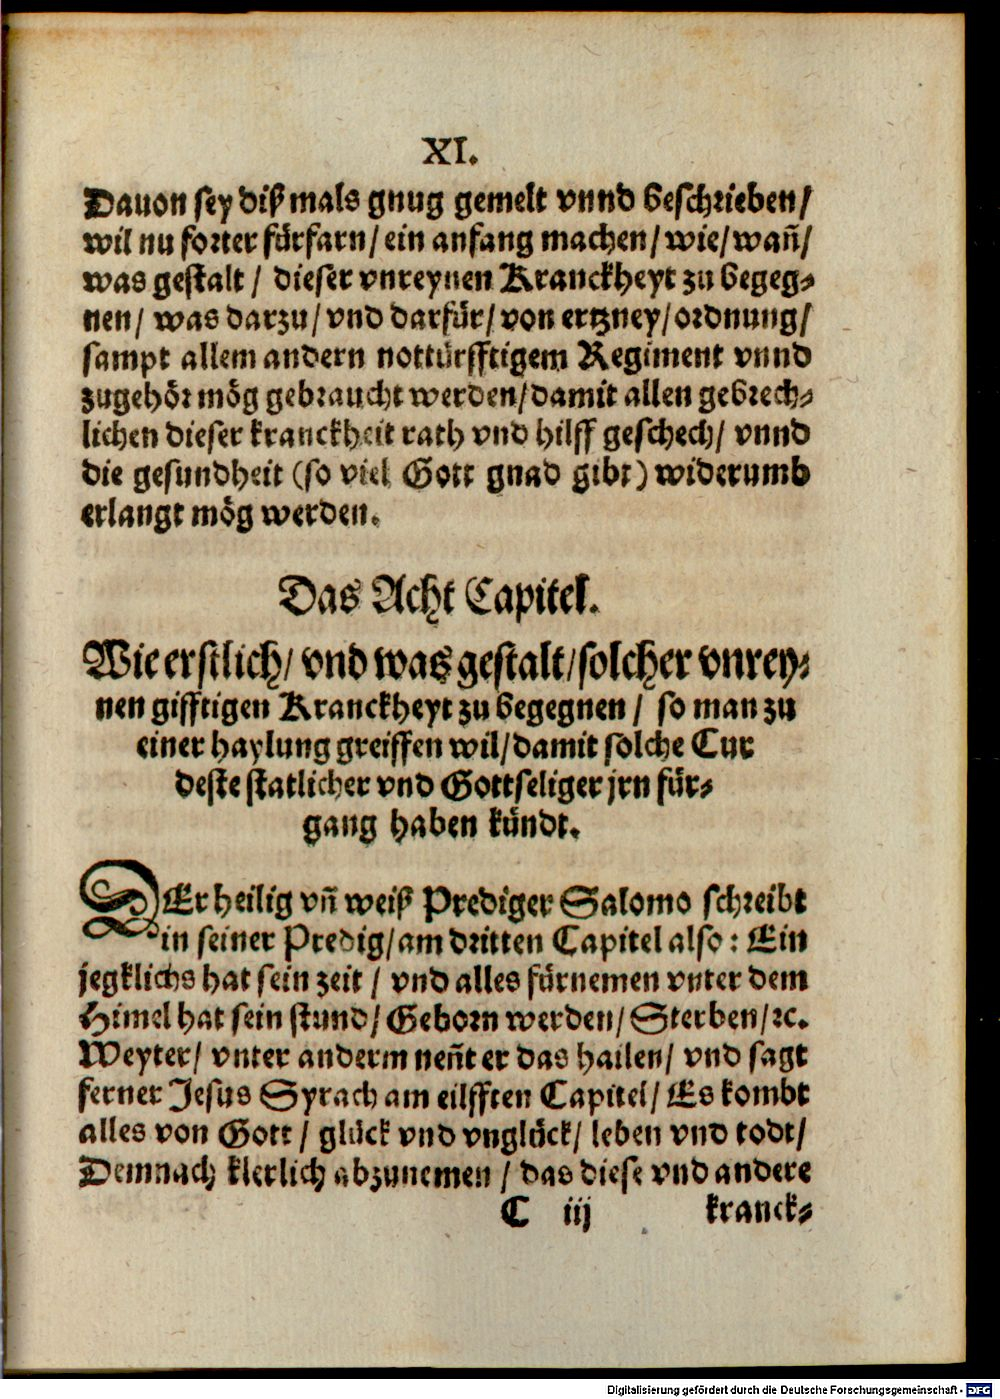 XI.
Dauon sey diß mals gnug gemelt vnnd beschrieben/
wil nu forter fürfarn/ ein anfang machen/ wie/ wañ/
was gestalt / dieser vnreynen Kranckheyt zu begeg⸗
nen/ was darzu/ vnd darfür/ von ertzney/ ordnung/
sampt allem andern nottürfftigem Regiment vnnd
zugehör mög gebraucht werden/ damit allen gebrech⸗
lichen dieser kranckheit rath vnd hilff geschech/ vnnd
die gesundheit (so viel Gott gnad gibt) widerumb
erlangt mög werden.
Das Acht Capitel.
Wie erstlich/ vnd was gestalt/ solcher vnrey⸗
nen gifftigen Kranckheyt zu begegnen / so man zu
einer haylung greiffen wil/ damit solche Cur
deste statlicher vnd Gottseliger jrn für⸗
gang haben kündt.
DEr heilig vñ weiß Prediger Salomo schreibt
in seiner Predig/ am dritten Capitel also: Ein
jegklichs hat sein zeit / vnd alles fürnemen vnter dem
Himel hat sein stund/ Geborn werden/ Sterben/ ꝛc.
Weyter/ vnter anderm neñt er das hailen/ vnd sagt
ferner Jesus Syrach am eilfften Capitel/ Es kombt
alles von Gott / glück vnd vnglück/ leben vnd todt/
Demnach klerlich abzunemen / das diese vnd andere
C iij kranck⸗
Digitalisierung gefördert durch die Deutsche Forschungsgemeinschaft - DFG